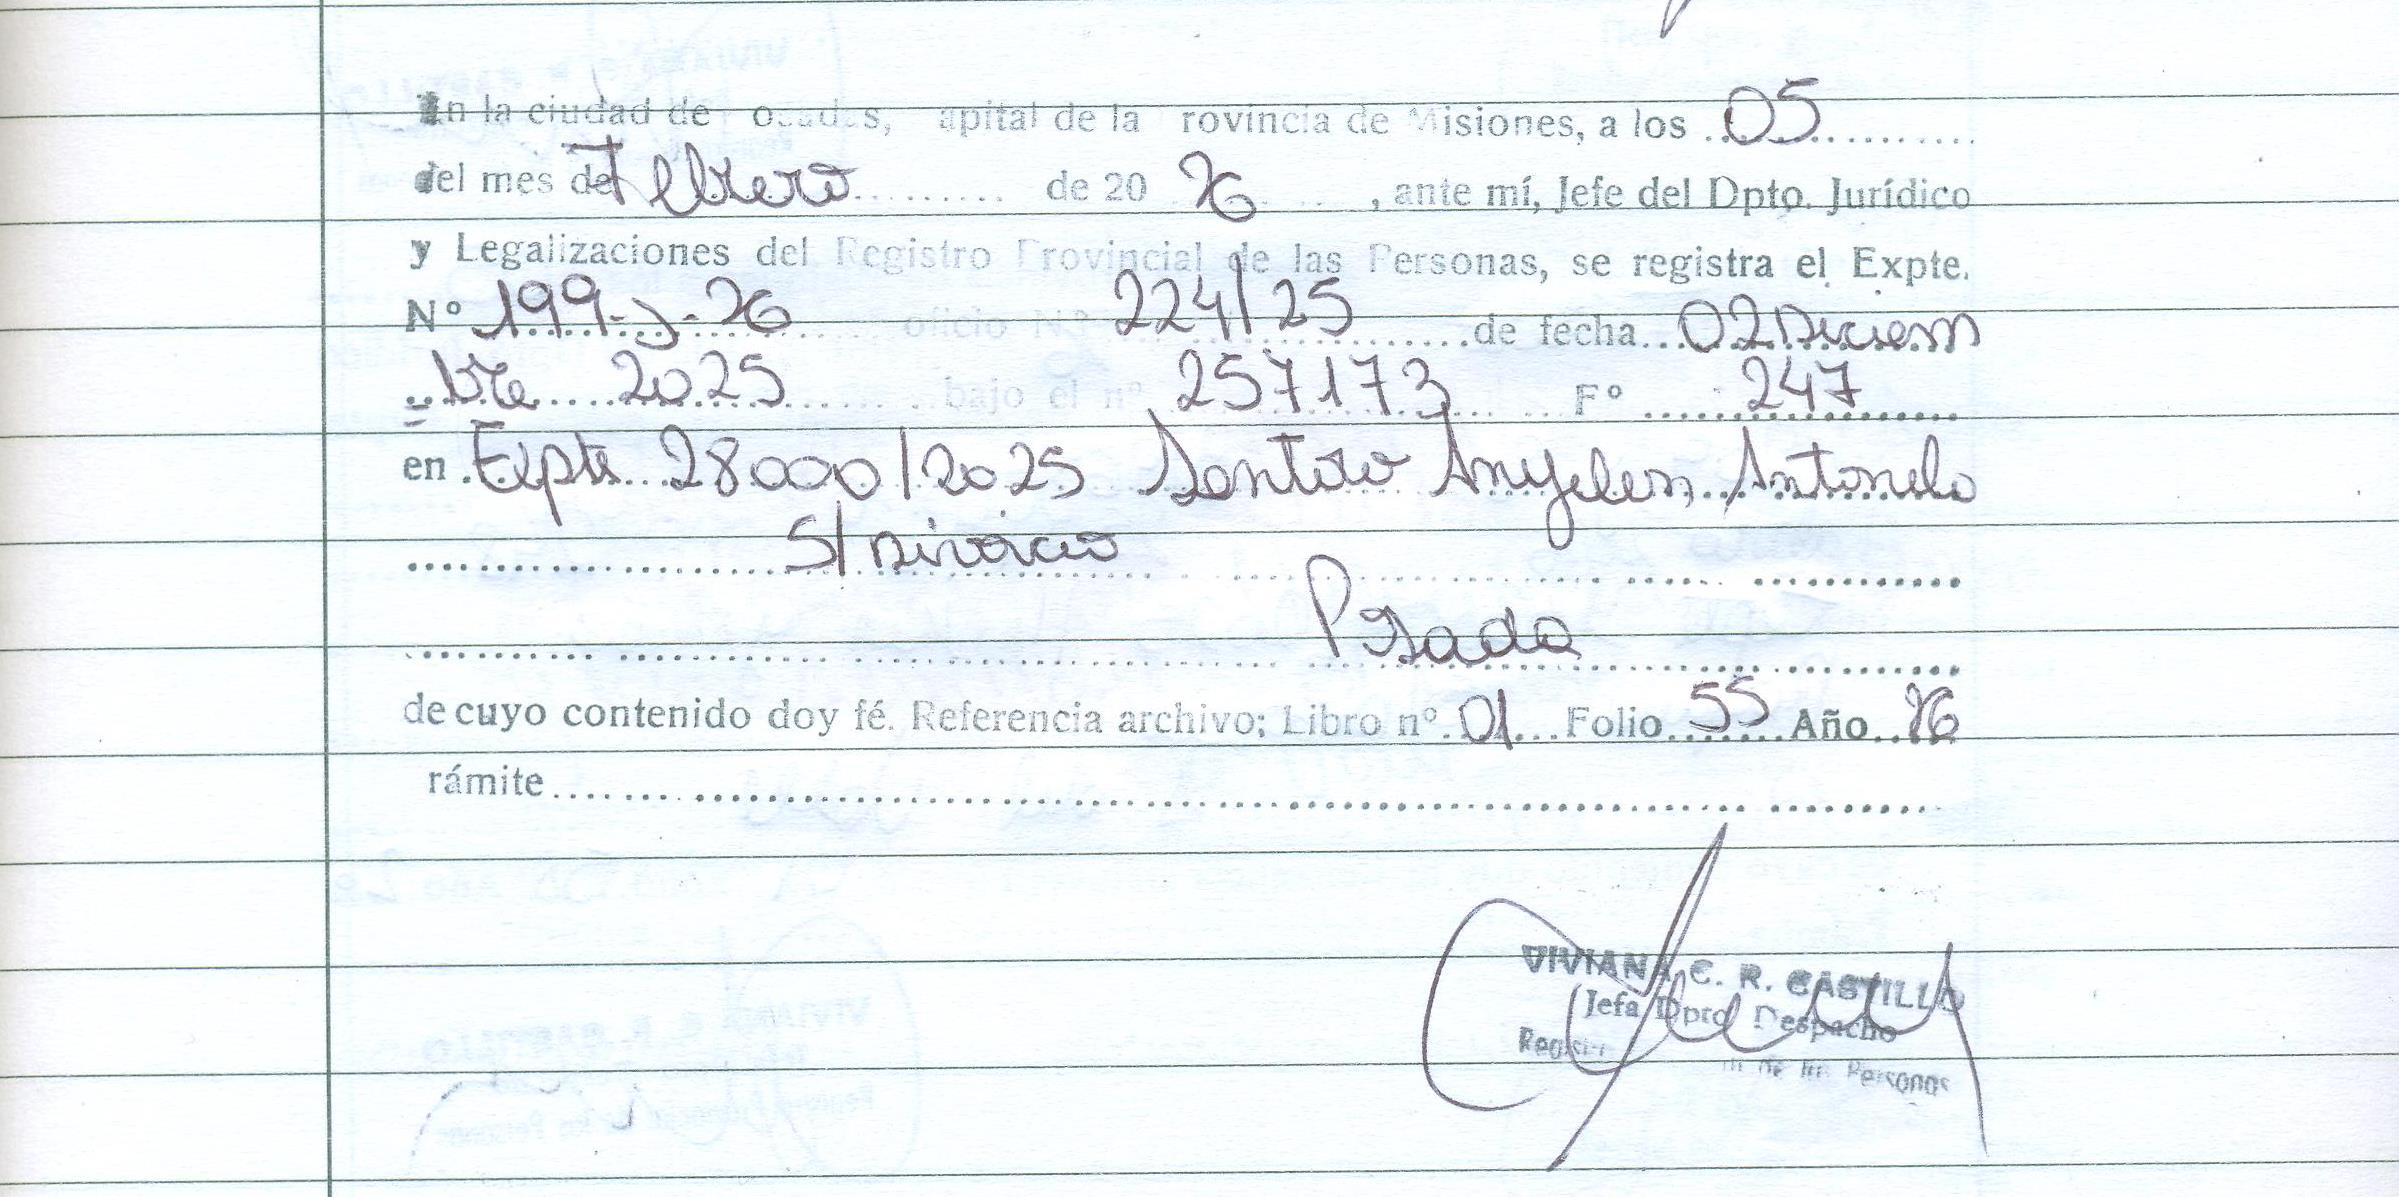 En la ciudad de osadas, apital de la rovincia de Misiones, a los 05
del mes de Febrero de 20 26, ante mí, Jefe del Dpto. Jurídico
y Legalizaciones del Registro Provincial de las Personas, se registra el Expte.
Nº 199-J-26 oficio Nº 224/25 de fecha 02 Diciem
bre 2025 bajo el nº 257173 Fº 247
en Expte 28000/2025 Angeles Antonela
S/ Divorcio
Psadas
de cuyo contenido doy fé. Referencia archivo; Libro nº 01 Folio 55 Año 26
rámite
VIVIANA C. R. CASTILLO
Jefa Dpto Despacho
de las Personas